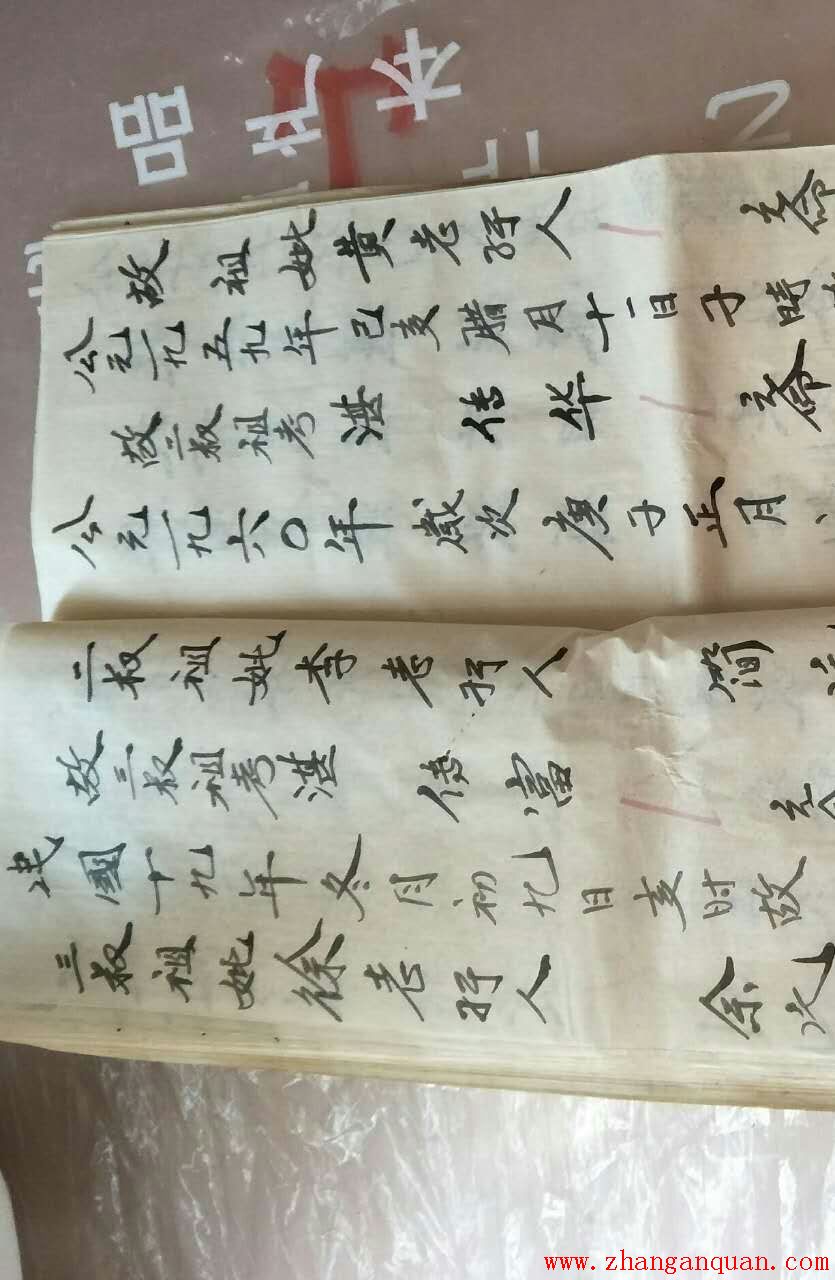 品
本
故祖妣黄老孺人
公元一九五九年己亥腊月十一日子時
故二叔祖考湛 传华
公元一九六〇年 歲次庚子正月
二叔祖妣李老孺人 简
故三叔祖考湛 传富
民國十九年冬月初九日亥时故
三叔祖妣徐老孺人 余氏
www.zhanganquan.com